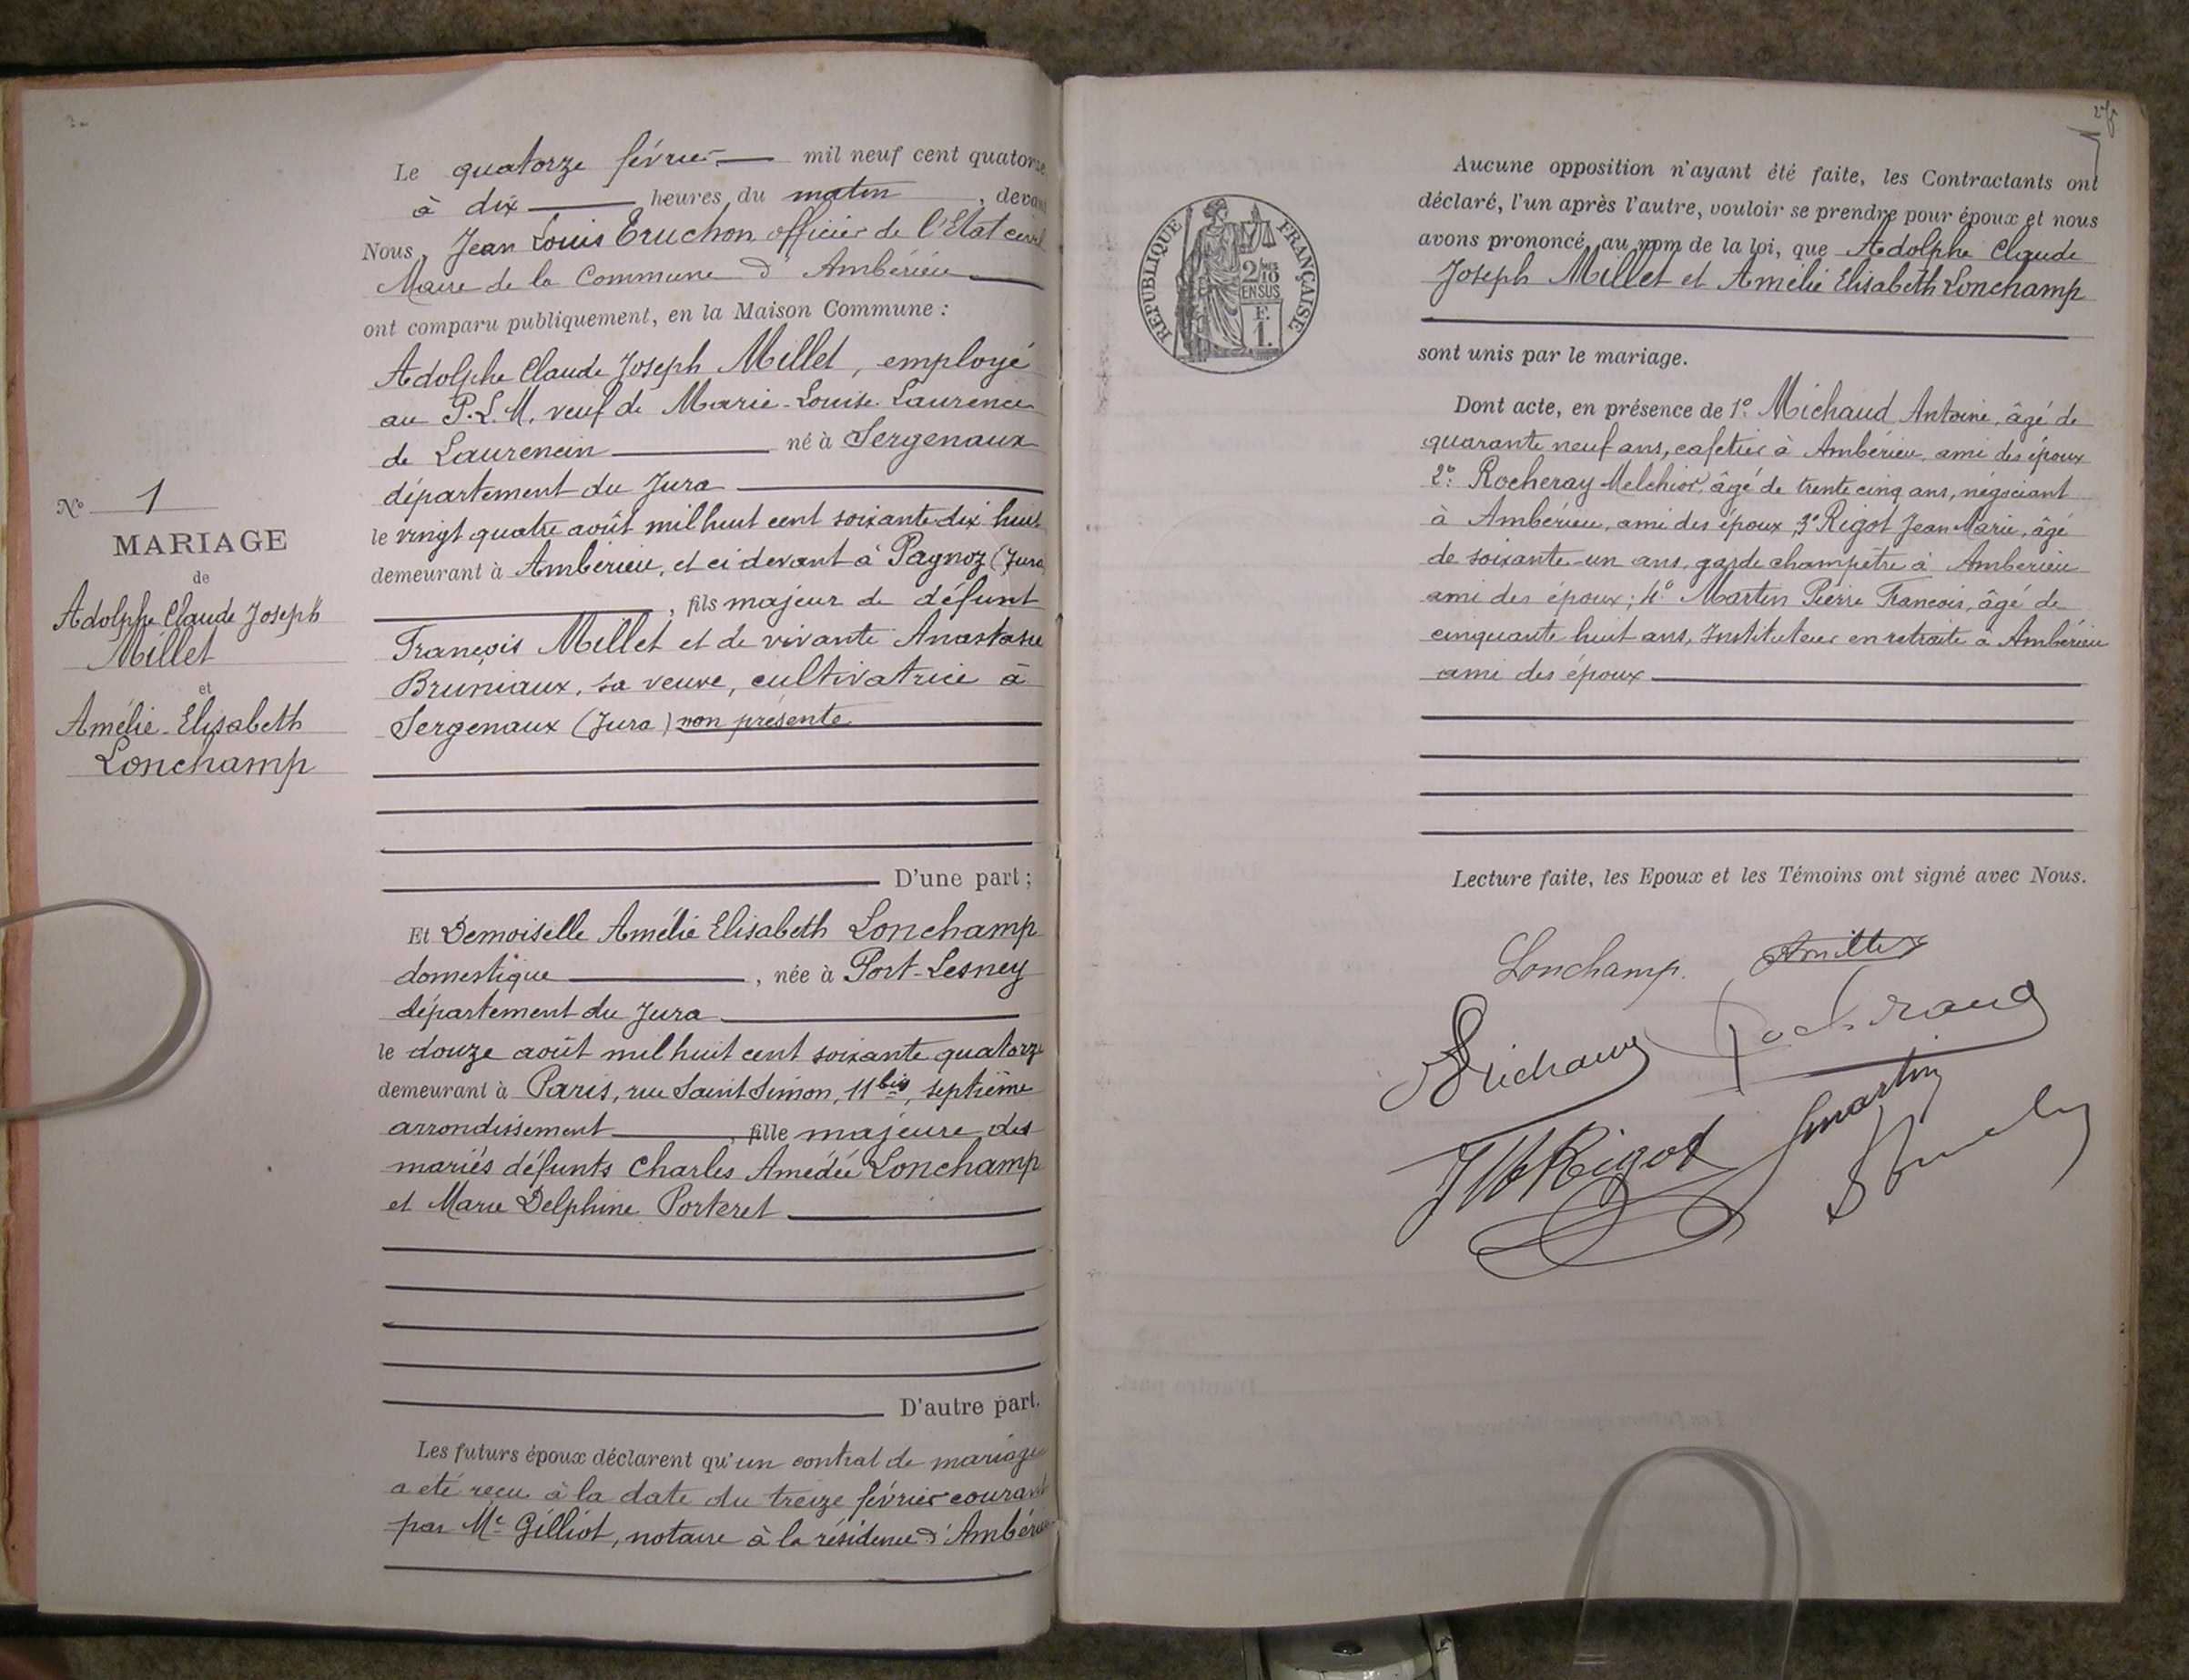 N° 1
MARIAGE
de
Adolphe Claude Joseph
Millet
et
Amélie-Elisabeth
Lonchamp
Le quatorze février mil neuf cent quatorze
à dix heures du matin, devant
Nous, Jean Louis Truchon officier de l'Etat civil
Maire de la Commune d'Ambérieu
ont comparu publiquement, en la Maison Commune :
Adolphe Claude Joseph Millet, employé
au P.L.M. veuf de Marie-Louise Laurence
de Laurencin né à Sergenaux
département du Jura
le vingt quatre août mil huit cent soixante dix huit
demeurant à Ambérieu, et ci devant à Pagnoz (Jura)
, fils majeur de défunt
François Millet et de vivante Anastasie
Bruniaux, sa veuve, cultivatrice à
Sergenaux (Jura) non présente
D'une part ;
Et Demoiselle Amélie Elisabeth Lonchamp
domestique, née à Port-Lesney
département du Jura
le douze août mil huit cent soixante quatorze
demeurant à Paris, rue Saint Simon, 11 bis, septième
arrondissement, fille majeure des
mariés défunts Charles Amédée Lonchamp
et Marie Delphine Porteret
D'autre part.
Les futurs époux déclarent qu'un contrat de mariage
a été reçu à la date du treize février courant
par Me Gilliot, notaire à la résidence d'Ambérieu
RÉPUBLIQUE FRANÇAISE
2/10 MES
EN SUS
F.
1.
Aucune opposition n'ayant été faite, les Contractants ont
déclaré, l'un après l'autre, vouloir se prendre pour époux et nous
avons prononcé, au nom de la loi, que Adolphe Claude
Joseph Millet et Amélie Elisabeth Lonchamp
sont unis par le mariage.
Dont acte, en présence de 1° Michaud Antoine, âgé de
quarante neuf ans, cafetier à Ambérieu, ami des époux
2° Rocheray Melchior, âgé de trente cinq ans, négociant
à Ambérieu, ami des époux, 3° Rigot Jean Marie, âgé
de soixante-un ans, garde champêtre à Ambérieu
ami des époux ; 4° Martin Pierre François, âgé de
cinquante huit ans, Instituteur en retraite à Ambérieu
ami des époux
Lecture faite, les Epoux et les Témoins ont signé avec Nous.
Lonchamp. AMillet
Michaud
JM Rigot martin